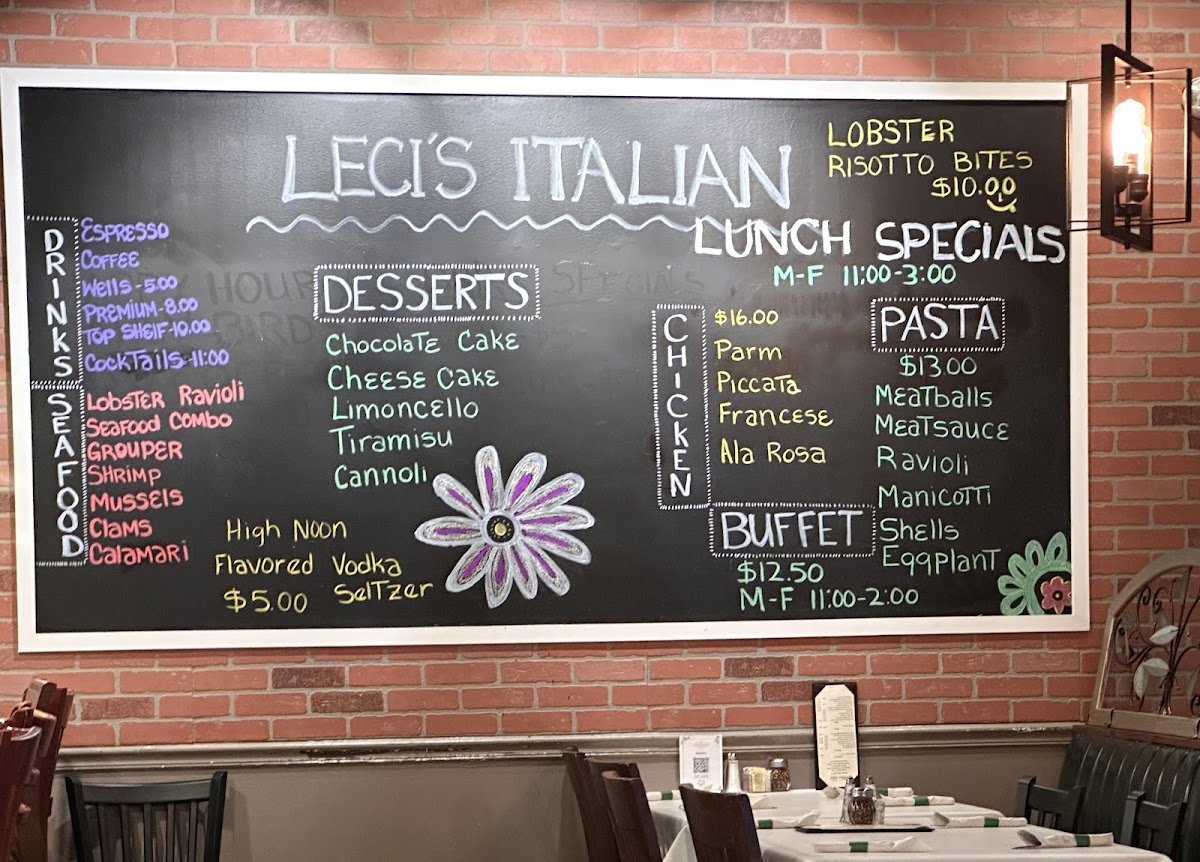 LECI'S ITALIAN
LOBSTER
RISOTTO BITES
$10.00
DRINKS
ESPRESSO
COFFEE
Wells - 5.00
PREMIUM - 8.00
TOP SHElF - 10.00
COCKTails - 11:00
SEAFOOD
LOBSTER Ravioli
Seafood COMBO
GROUPER
SHRIMP
MUSSElS
Clams
CALAMARI
DESSERTS
ChocolaTE CakE
ChEESE CakE
Limoncello
Tiramisu
Cannoli
High Noon
Flavored Vodka
$5.00 SelTzer
LUNCH SPECIALS
M-F 11:00-3:00
CHICKEN
$16.00
Parm
Piccata
Francese
Ala Rosa
PASTA
$13.00
MEATballs
MEATsauce
Ravioli
Manicotti
Shells
EggplanT
BUFFET
$12.50
M-F 11:00-2:00